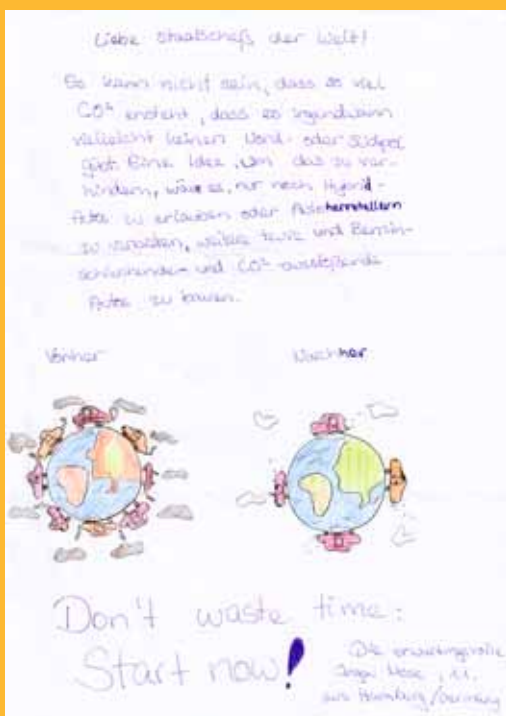 Liebe Staatschefs der Welt!
Es kann nicht sein, dass so viel
CO² entsteht, dass es irgendwann
vielleicht keinen Nord- oder Südpol
gibt. Eine Idee, um das zu ver-
hindern, wäre es, nur noch Hybrid-
Autos zu erlauben oder Autoherstellern
zu verbieten, weitere teure und Benzin-
schluckende- und CO² ausstoßende
Autos zu bauen.
Vorher
Nachher
Don't waste time:
Start now!
Die erwartungsvolle
, 11,
aus Hamburg/Germany